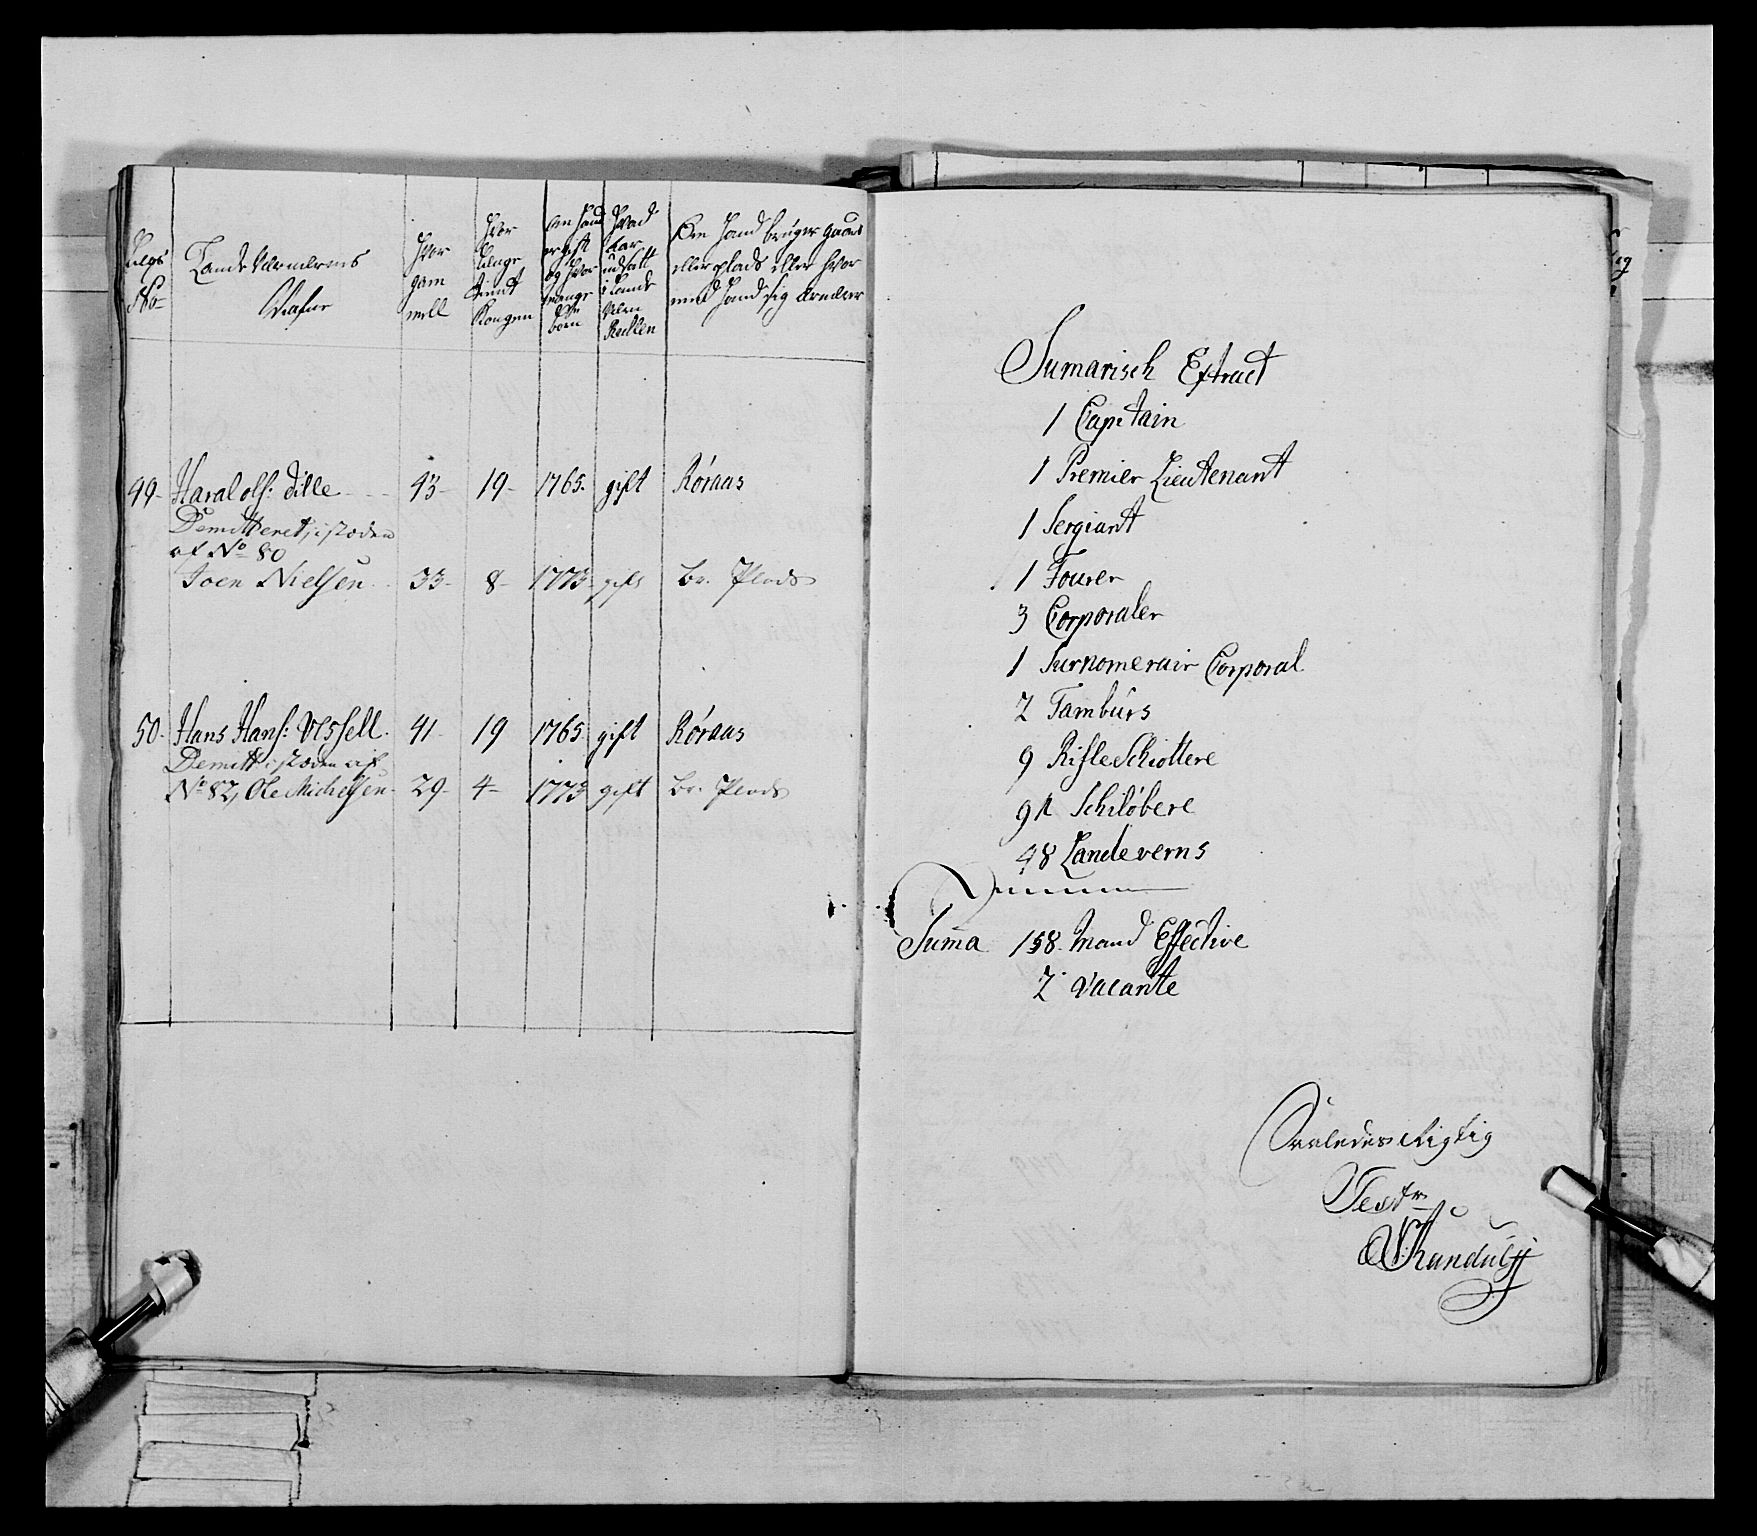 Lægs
No
Landeværnernes
Nafne
Hvor
gam
mell
Hvor
længe
tient
Kongen
om hand
er gift
og hvor
mange
børn
Hvad
Aar
udsatt
i Lande
Værn
Rullen
Om hand bruger gaard
eller plads eller hvor
med hand sig ernærer
49- Haral ols: dille 43- 19- 1765. gift Røraas
Demitteret, i støden
af No 80
Joen Nielsen 33- 8- 1773- gift br. Plads
50- Hans Hans: Vessell. 41- 19 1765 gift Røraas
Demitt: i støden af
No 82, Ole Michelsen 29- 4- 1773 gift br. Plads
Sumarisch Extract
1 Capitain
1 Premier Lieutenant
1 Sergiant
1 Fourer
3 Corporaler
1 Surnomerair Corporal
2 Tamburs
9 Rifle Schiøttere
91 Schiløbere
48 Landeverns
Suma 158. Mand Effective
2 vacante
Saaledes Rigtig
Test